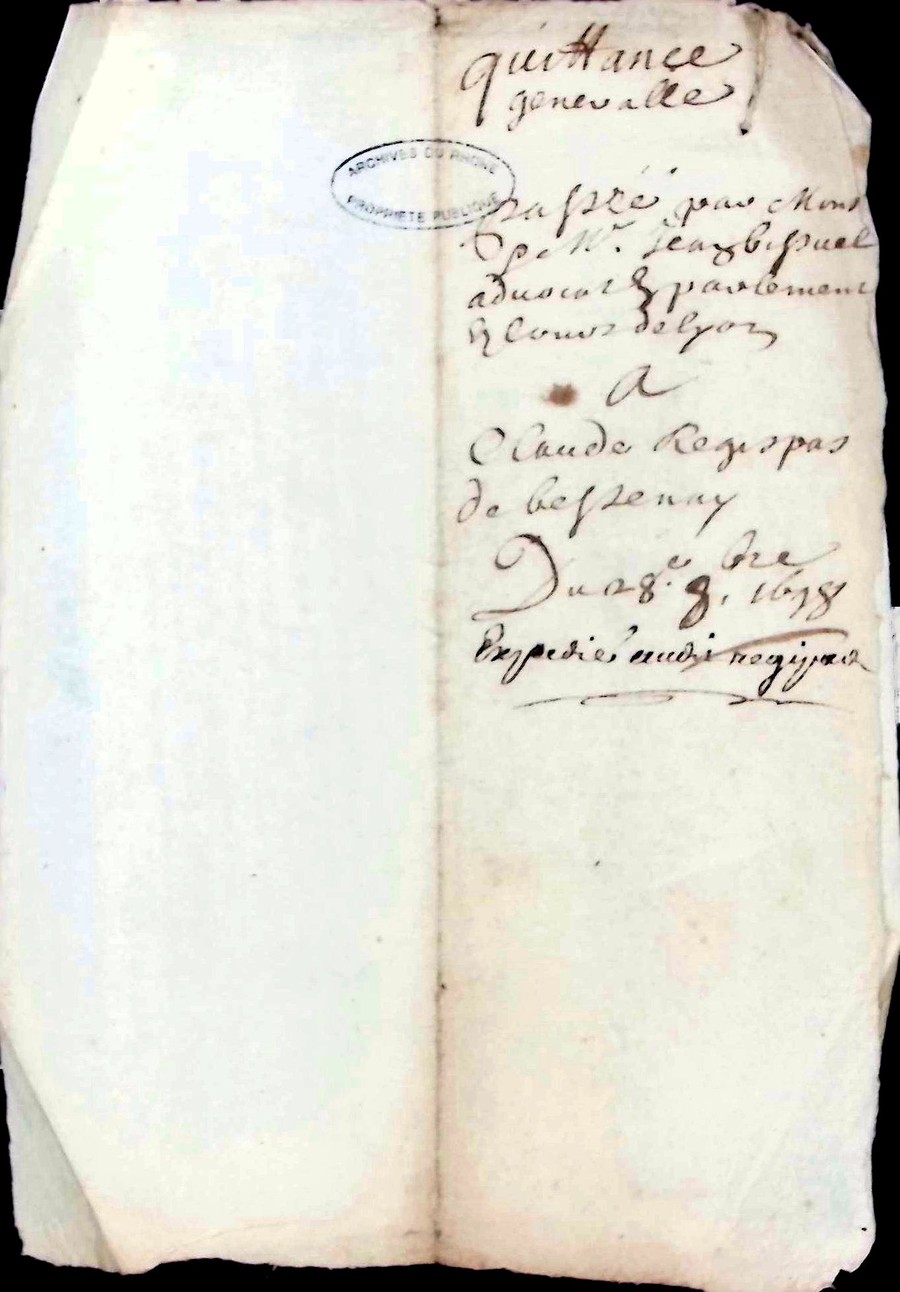 quittance
generalle
ARCHIVES DU RHONE
PROPRIETE PUBLIQUE
passée par Mons
Mr. Jean bissuel
advocat En parlement
Et Cours de lyon
A
Claude Regispas
de bessenay
Du 28e 8bre 1678
Expedié audit regipas